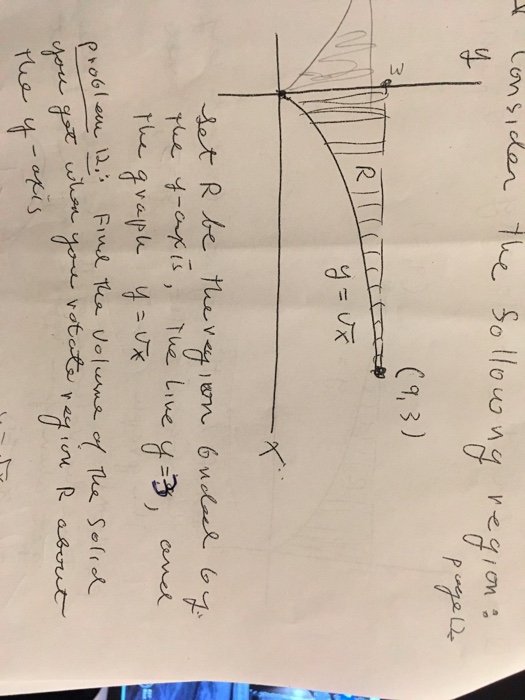 Consider the following region:
page 12
y
3
(9,3)
R
y = √x
x
Let R be the region bnded by:
the y-axis, the line y=3, and
the graph y = √x
problem 12: Find the volume of the solid
you get when you rotate region R about
the y-axis